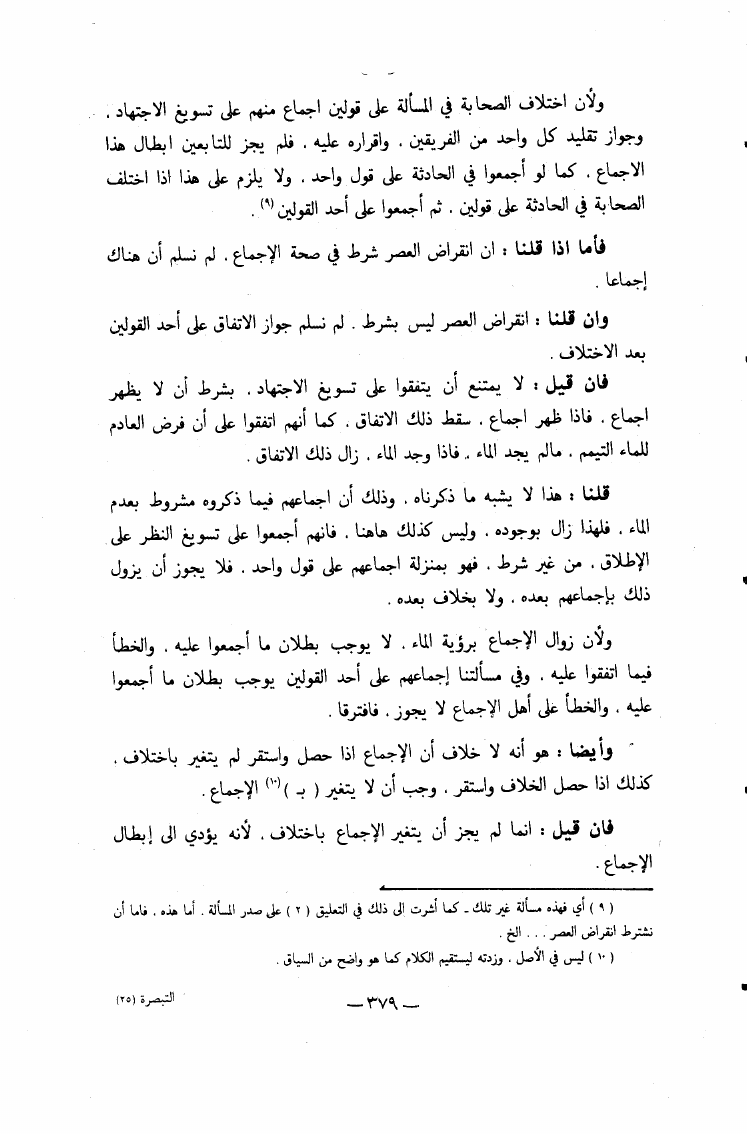 ولأن اختلاف الصحابة في المسألة على قولين اجماع منهم على تسويغ الاجتهاد ،
وجواز تقليد كل واحد من الفريقين ، واقراره عليه ، فلم يجز للتابعين ابطال هذا
الاجماع ، كما لو أجمعوا في الحادثة على قول واحد ، ولا يلزم على هذا اذا اختلف
الصحابة في الحادثة على قولين ، ثم أجمعوا على أحد القولين (٩) .
فأما اذا قلنا : ان انقراض العصر شرط في صحة الإجماع ، لم نسلم أن هناك
إجماعا .
وان قلنا : انقراض العصر ليس بشرط . لم نسلم جواز الاتفاق على أحد القولين
بعد الاختلاف .
فان قيل : لا يمتنع أن يتفقوا على تسويغ الاجتهاد ، بشرط أن لا يظهر
اجماع ، فاذا ظهر اجماع ، سقط ذلك الاتفاق ، كما أنهم اتفقوا على أن فرض العادم
للماء التيمم ، مالم يجد الماء ، فاذا وجد الماء ، زال ذلك الاتفاق .
قلنا : هذا لا يشبه ما ذكرناه ، وذلك أن اجماعهم فيما ذكروه مشروط بعدم
الماء ، فلهذا زال بوجوده ، وليس كذلك هاهنا ، فانهم أجمعوا على تسويغ النظر على
الإطلاق ، من غير شرط ، فهو بمنزلة اجماعهم على قول واحد ، فلا يجوز أن يزول
ذلك بإجماعهم بعده ، ولا بخلاف بعده .
ولأن زوال الإجماع برؤية الماء ، لا يوجب بطلان ما أجمعوا عليه ، والخطأ
فيما اتفقوا عليه ، وفي مسألتنا إجماعهم على أحد القولين يوجب بطلان ما أجمعوا
عليه ، والخطأ على أهل الإجماع لا يجوز ، فافترقا .
وأيضا : هو أنه لا خلاف أن الإجماع اذا حصل واستقر لم يتغير باختلاف ،
كذلك اذا حصل الخلاف واستقر ، وجب أن لا يتغير ( بـ ) (١٠) الإجماع .
فان قيل : انما لم يجز أن يتغير الإجماع باختلاف ، لأنه يؤدي الى إبطال
الإجماع .
( ٩ ) أي فهذه مسألة غير تلك ـ كما أشرت الى ذلك في التعليق ( ٢ ) على صدر المسألة . أما هذه ، فاما أن
نشترط انقراض العصر . . . الخ .
( ١٠ ) ليس في الأصل ، وزدته ليستقيم الكلام كما هو واضح من السياق .
— ٣٧٩ —
التبصرة (٢٥)